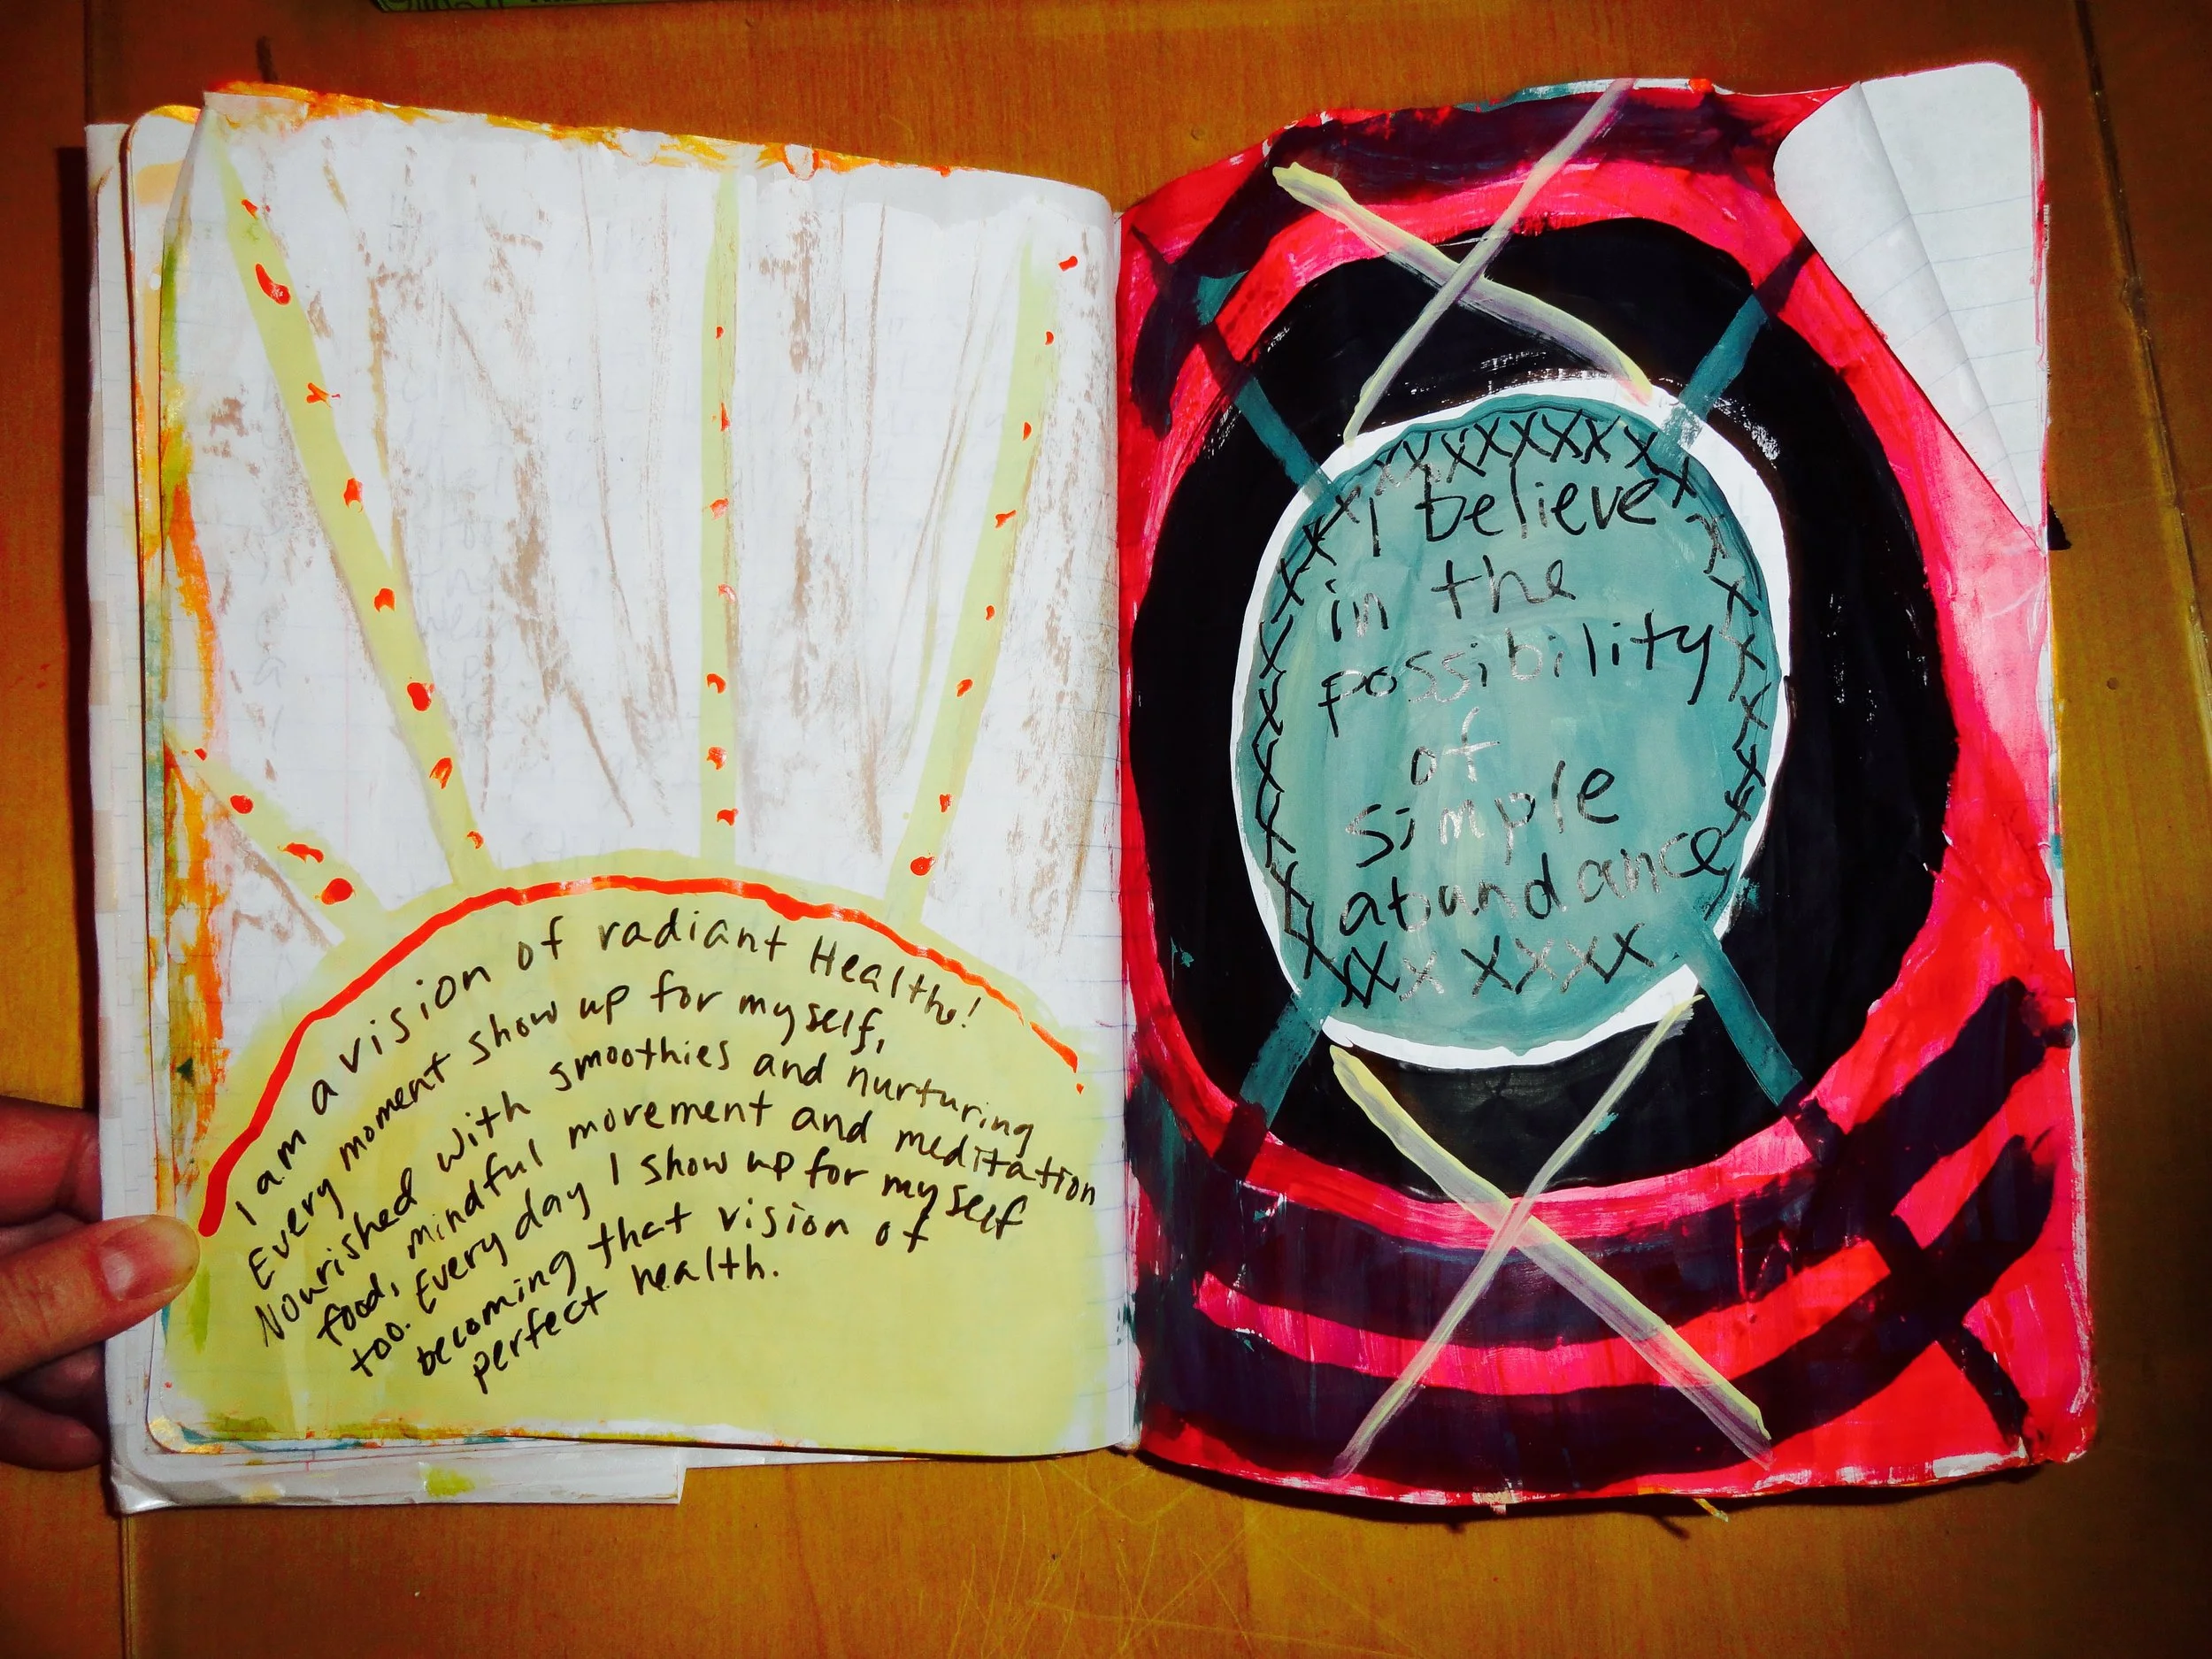 I am a vision of radiant Health!
Every moment show up for myself,
Nourished with smoothies and nurturing
food, mindful movement and meditation
too. Every day I show up for myself
becoming that vision of
perfect health.
XXXXXXXXX
I believe
in the
possibility
of
simple
abundance
XXX XXXX